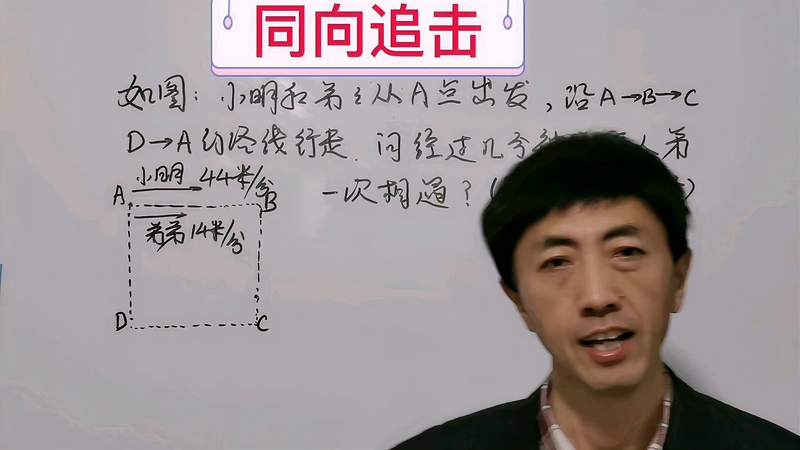 同向追击
如图：小明和弟弟从A点出发，沿A→B→C
D→A的路线行走．问经过几分 人第
一次相遇？（ ）
A 小明 44米/分 B
弟弟 14米/分
D C